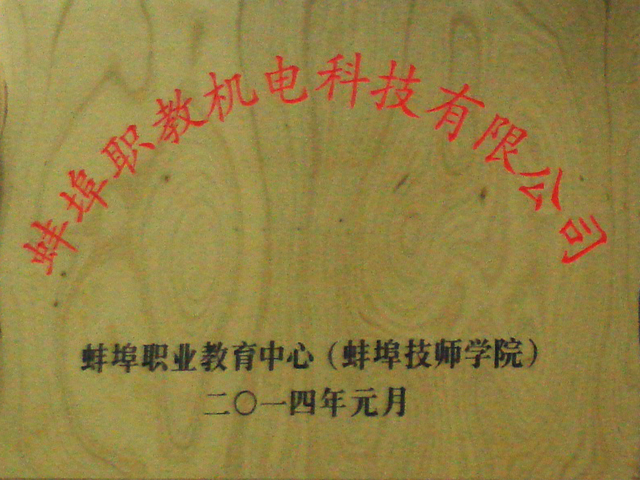 蚌埠职教机电科技有限公司
蚌埠职业教育中心（蚌埠技师学院）
二〇一四年元月